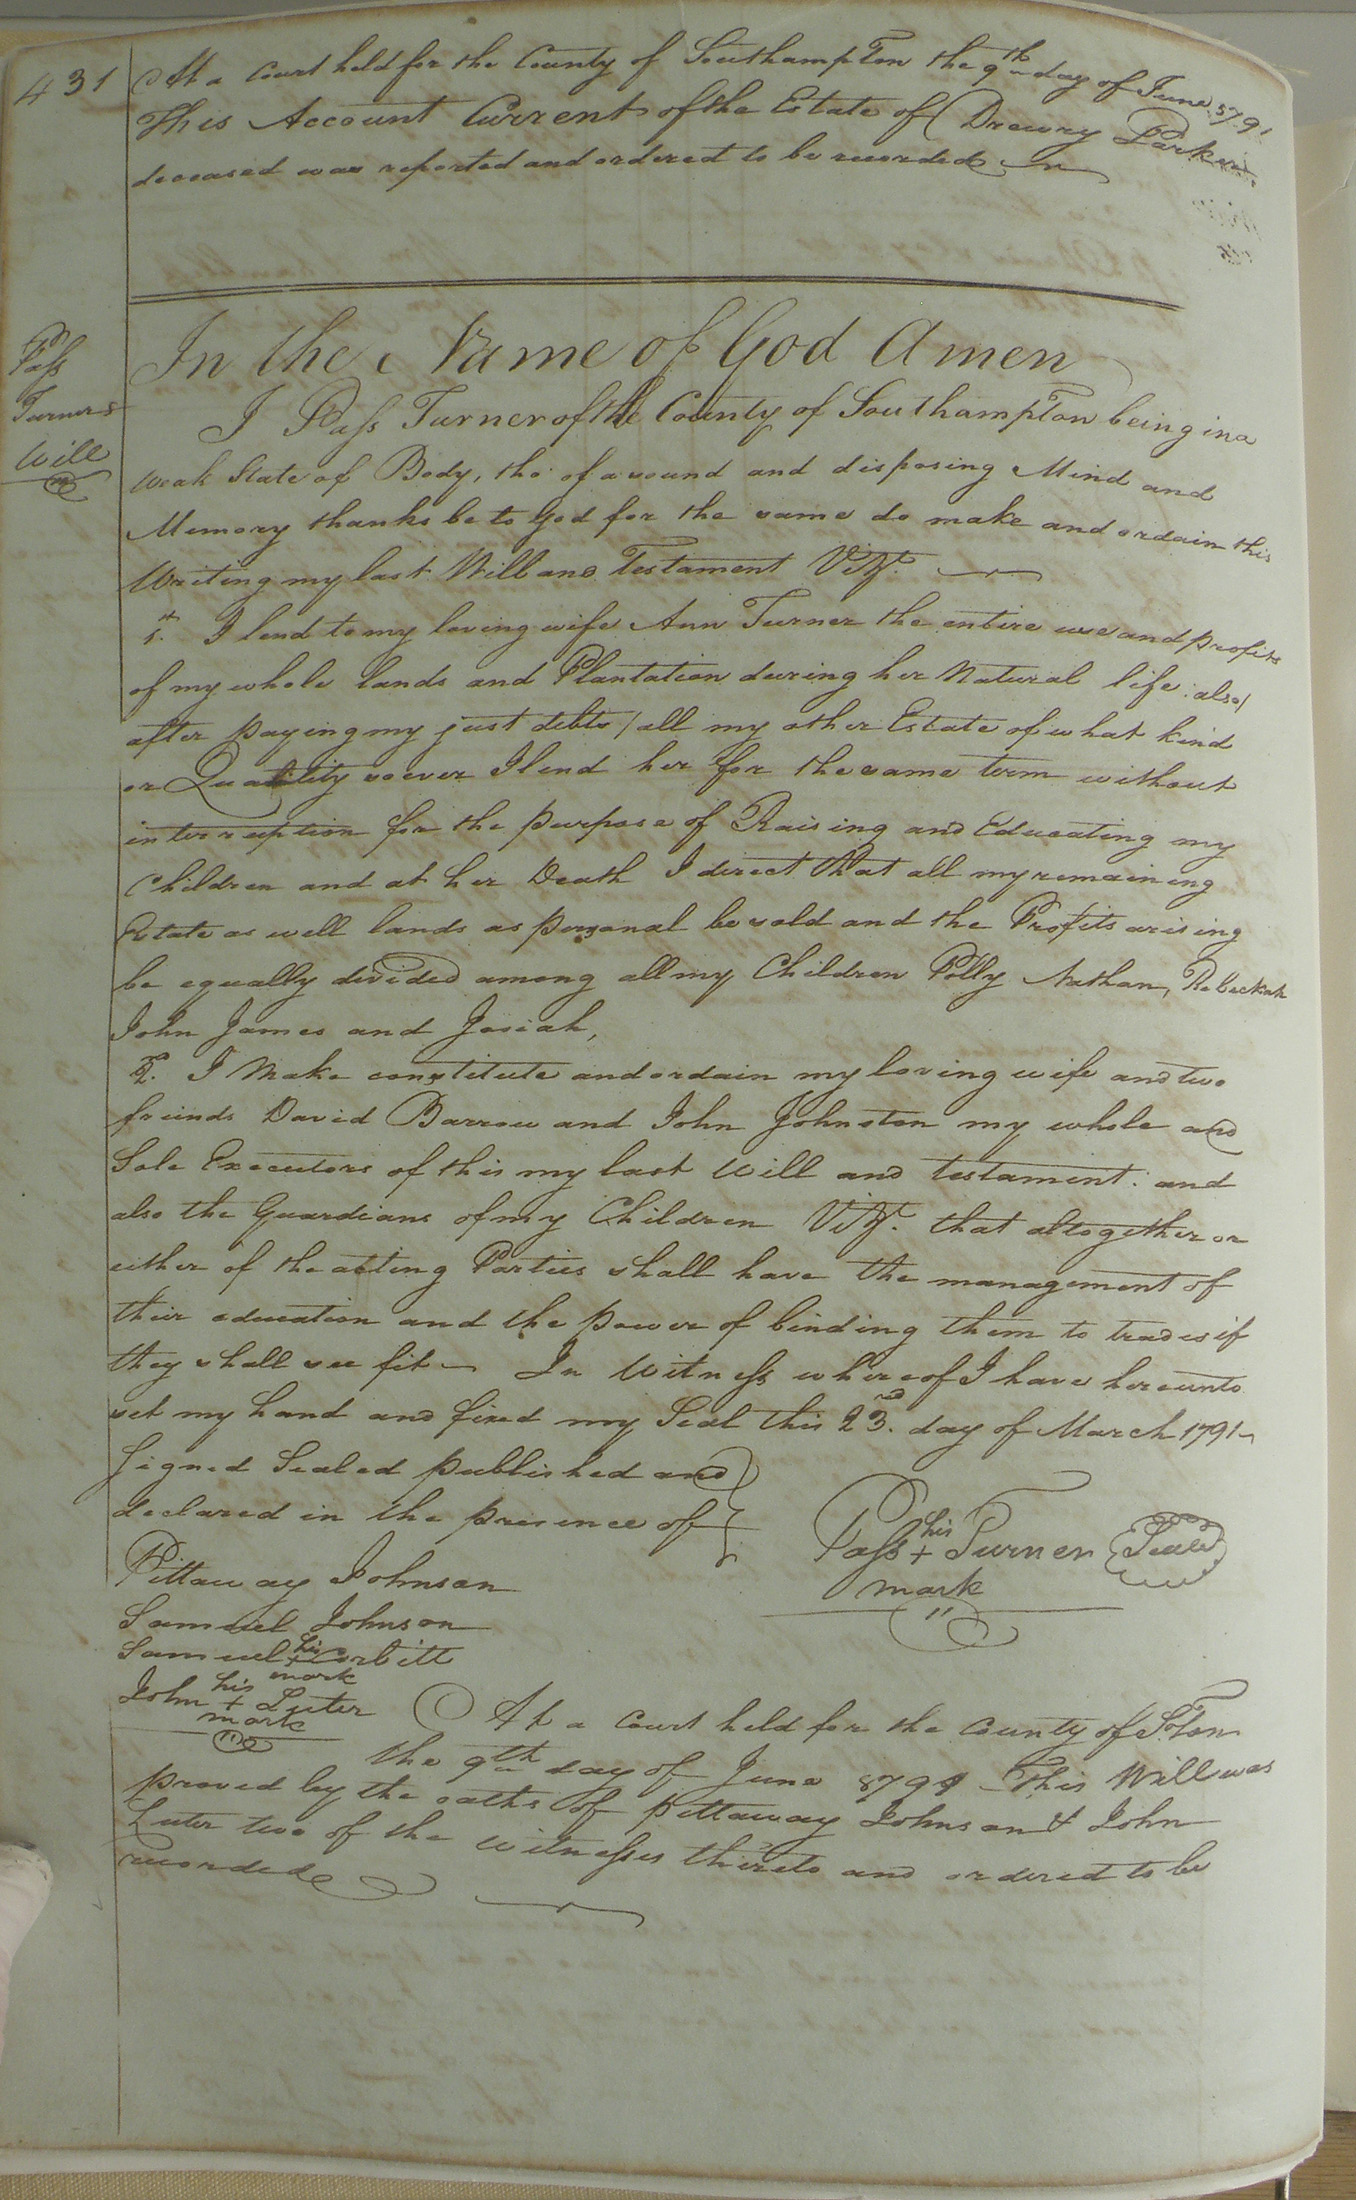 431
At a Court held for the County of Southampton the 9th day of June 1791
This Account Current of the Estate of Drewry Parker
deceased was reported and ordered to be recorded
Pass
Turners
Will
In the Name of God Amen
I Pass Turner of the County of Southampton being in a
weak State of Body, tho' of a sound and disposing Mind and
Memory thanks be to God for the same do make and ordain this
Writing my last Will and Testament Vizt.
1st. I lend to my loving wife Ann Turner the entire use and profits
of my whole lands and Plantation during her Natural life: also/
after paying my just debts/ all my other Estate of what kind
or Quality soever I lend her for the same term without
interruption for the purpose of Raising and Educating my
Children and at her Death I direct that all my remaining
Estate as well lands as personal be sold and the Profits arising
be equally devided among all my Children Polly Nathan, Rebeckah
John James and Josiah,
2. I Make constitute and ordain my loving wife and two
friends David Barrow and John Johnston my whole and
Sole Executors of this my last Will and testament: and
also the Guardians of my Children Vizt. that altogether or
either of the acting Parties shall have the management of
their education and the power of binding them to trades if
they shall see fit In Witness whereof I have hereunto
set my hand and fixed my Seal this 23rd. day of March 1791
Signed Sealed published and
declared in the presence of
Pass his + Turner Seal
mark
Pittaway Johnson
Samuel Johnson
Samuel his + Corbitt
mark
John his + Luter
mark
At a Court held for the County of S.Ton
the 9th day of June 1791 This Will was
proved by the oaths of Pittaway Johnson & John
Luter two of the witnesses thereto and ordered to be
recorded